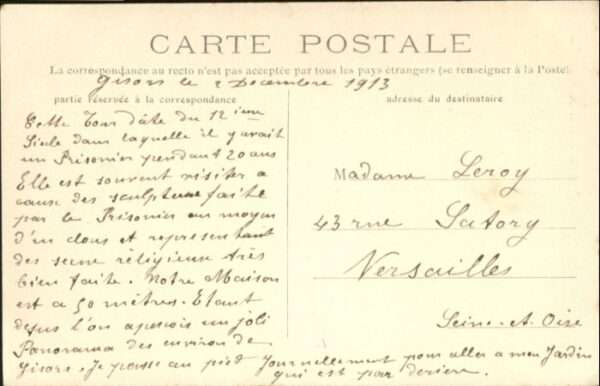 CARTE POSTALE
La correspondance au recto n'est pas acceptée par tous les pays étrangers (se renseigner à la Poste)
Gisors le 2 Decembre 1913
partie réservée à la correspondance
adresse du destinataire
Cette Tour dâte du 12 ieme
Siele dans laquelle il y avait
un Prisonier pendant 20 ans
Elle est souvent visiter a
cause des sculpture faite
par le Prisonier au moyen
d'un clous et representant
des scene religieuse très
bien faite. Notre Maison
est a 50 mètres. Etant
desus l'on apercois un joli
Panorama des environ de
Gisors. Je passe au pied Journellement pour aller a mon Jardin
qui est par deriere.
Madame Leroy
43 rue Satory
Versailles
Seine-et-Oise